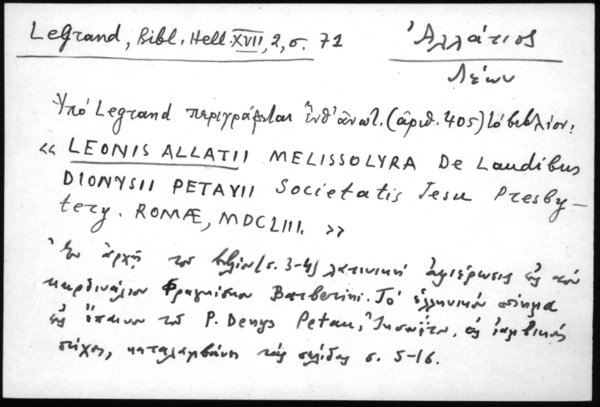 Legrand, Bibl. Hell. XVII, 2, σ. 71
Ἀλλάτιος
Λέων
Ὑπὸ Legrand περιγράφεται ἔνθ' ἀνωτ. (ἀριθ. 405) τὸ βιβλίον:
« LEONIS ALLATII MELISSOLYRA De Laudibus
DIONYSII PETAVII Societatis Jesu Presby-
tery. ROMÆ, MDCLIII. »
Ἐν ἀρχῇ τοῦ βιβλίου (σ. 3-4) λατινικὴ ἀφιέρωσις εἰς τὸν
καρδινάλιον Φραγκῖσκον Barberini. Τὸ ἑλληνικὸν ποίημα
εἰς ἔπαινον τοῦ P. Denys Petau, Ἰησουίτου, εἰς ἰαμβικοὺς
στίχους, καταλαμβάνει τὰς σελίδας σ. 5-16.